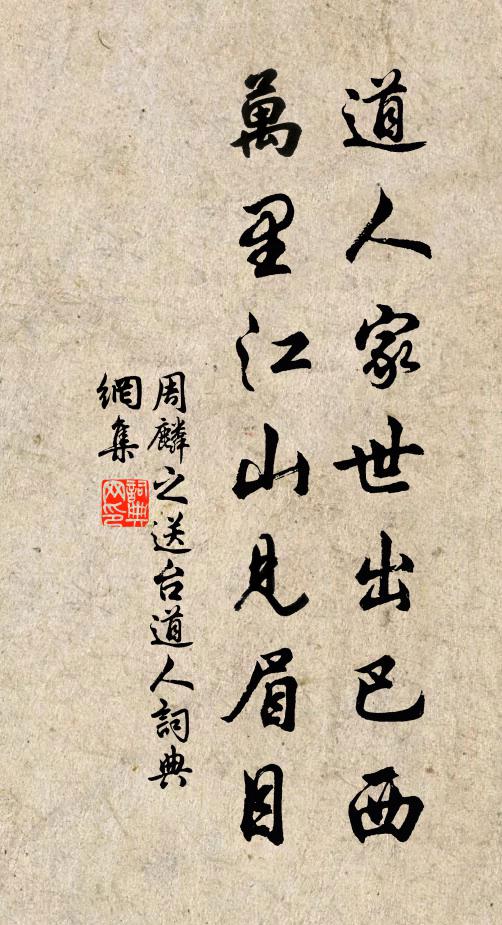 道人家世出巴西
萬里江山見眉目
周麟之送台道人詞典
網集
詞典网印